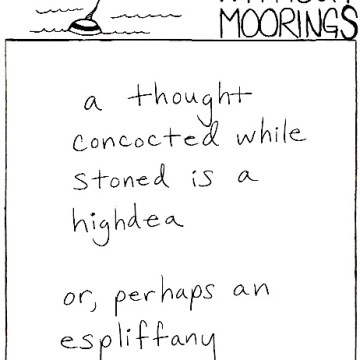 MOORINGS
a thought
concocted while
stoned is a
highdea
or, perhaps an
espliffany